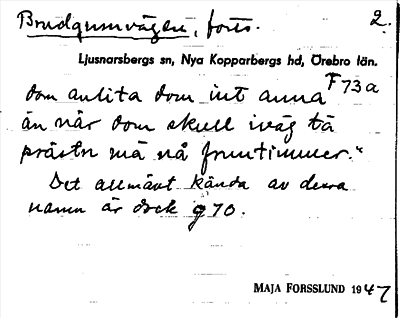 Brudgumvägen, forts. 2.
Ljusnarsbergs sn, Nya Kopparbergs hd, Örebro län.
F 73a
dom anlita dom int anna
än når dom skull iväg tä
prästn mä nå fruntimmer."
Det allmänt kända av dessa
namn är dock g 70.
MAJA FORSSLUND 1947